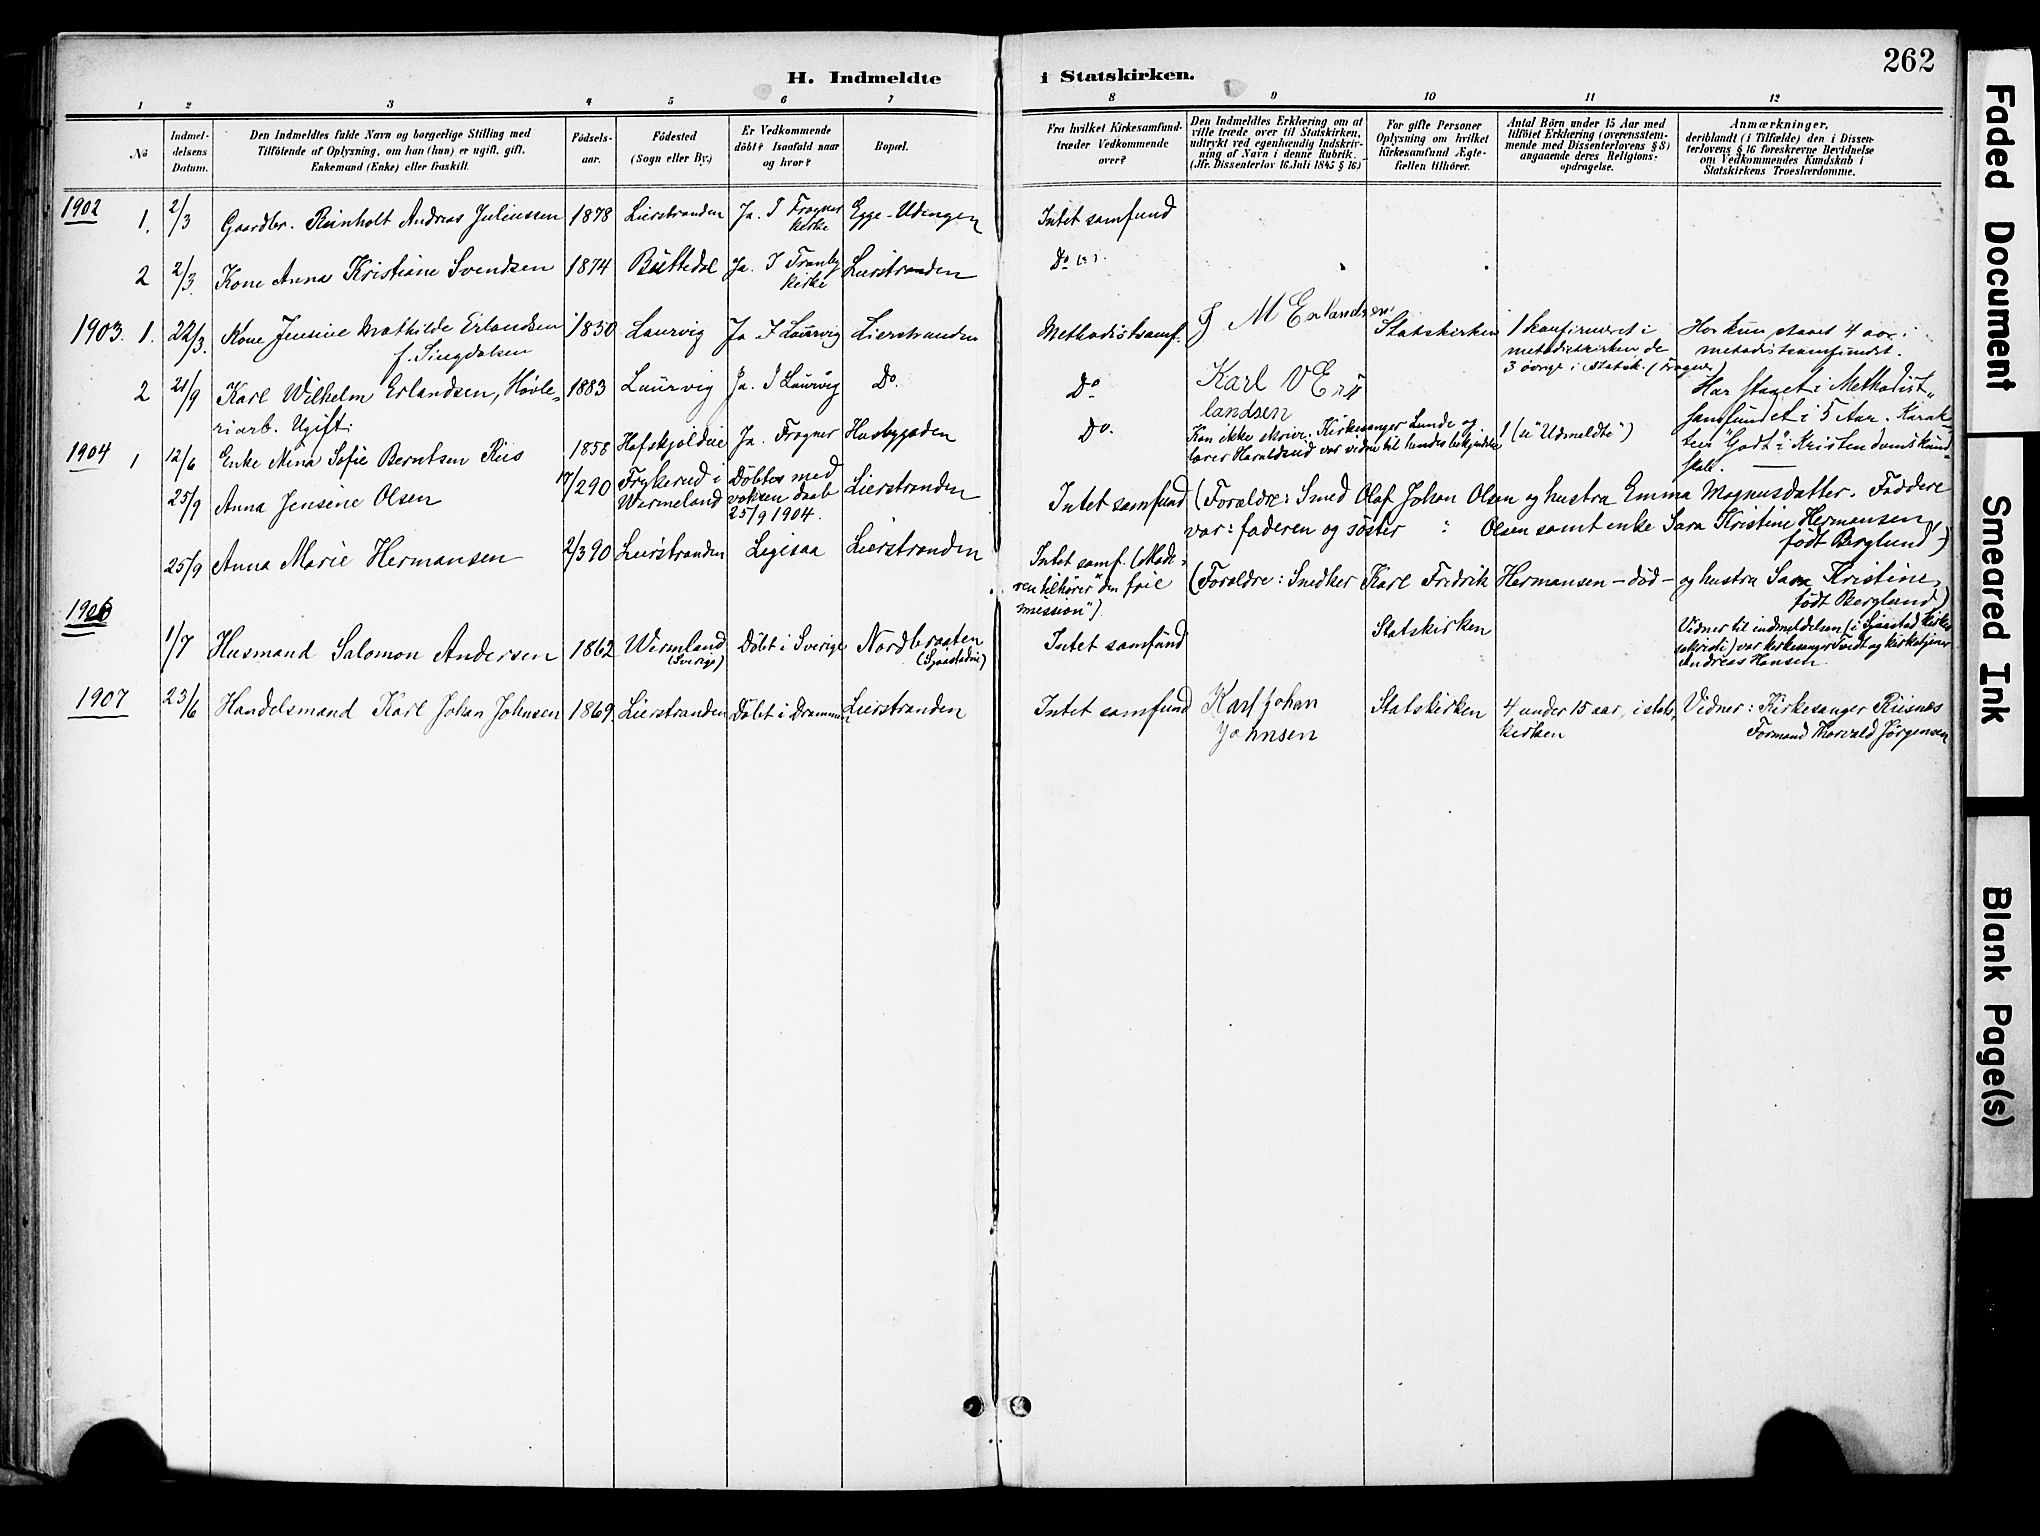 262
H. Indmeldte i Statskirken.
1 2 3 4 5 6 7 8 9 10 11 12
No
Indmel-
delsens
Datum.
Den Indmeldtes fulde Navn og borgerlige Stilling med
Tilföiende af Oplysning, om han (hun) er ugift, gift,
Enkemand (Enke) eller fraskilt.
Födsels-
aar.
Födested
(Sogn eller By.)
Er Vedkommende
döbt? Isaafald naar
og hvor?
Bopæl.
Fra hvilket Kirkesamfund
træder Vedkommende
over?
Den Indmeldtes Erklæring om at
ville træde over til Statskirken,
udtrykt ved egenhændig Indskriv-
ning af Navn i denne Rubrik.
(Jfr. Dissenterlov 16 Juli 1845 § 16.)
For gifte Personer
Oplysning om hvilket
Kirkesamfund Ægte-
fællen tilhörer.
Antal Börn under 15 Aar med
tilföiet Erklæring (overensstem-
mende med Dissenterlovens § 8)
angaaende deres Religions-
opdragelse.
Anmærkninger,
deriblandt (i Tilfælde) den i Dissen-
terlovens § 16 foreskrevne Bevidnelse
om Vedkommendes Kundskab i
Statskirkens Troeslærdomme.
1902
1. 2/3 Gaardbr. Reinholt Andreas Juliussen 1878 Lierstranden Ja. I Frogner
kirke
Egge-Udengen Intet samfund
2 2/3 Kone Anna Kristiane Svendsen 1874 Ja. I Tranby
kirke
Lierstranden Do
1903. 1. 22/3. Kone Jensine Mathilde Erlandsen
f. Lingdalsen
1850 Laurvig Ja I Laurvig Lierstranden Methodistsamf. J M Erlandsen Statskirken
1 konfirmeret i
metodistkirken de
3 øvrige i statsk. (Frogner)
Har kun staaet 4 aar i
metodistsamfundet.
2 21/9 Karl Wilhelm Erlandsen, Høvle-
riarb. Ugift.
1883 Laurvig Ja. I Laurvig Do. Do
Karl V Er
landsen
Har staaet i Methodist-
samfundet i 5 Aar. Karak-
ter "Godt" i Kristendomskund-
skab.
1904 1 12/6 Enke Mina Sofie Berntsen Riis 1858 Ja. Frogner Husbygaden Do.
Kan ikke skrive. Kirkesanger Lunde og
lærer Haraldseid var vidne til hendes
1 (se "Udmeldte")
25/9 Anna Jensine Olsen 17/2 90 Frykerud i
Wermeland
Döbtes med
voksen daab
25/9 1904.
Lierstranden Intet samfund
(Forældre: Smed Olaf Johan Olsen og hustru Emma Magnusdatter. Faddere
var: faderen og søster Olsen samt enke Sara Kristine Hermansen,
født Berglund)
25/9 Anna Marie Hermansen 2/3 90 Lierstranden Ligesaa Lierstranden
Intet samf. (Mode-
ren tilhører "den frie
mission").
(Forældre: Snedker Karl Fredrik Hermansen - død - og hustru Sara Kristine,
født Berglund)
1906
1/7 Husmand Salomon Andersen 1862 Wermland
(Sverige)
Döbt i Sverige Nordbraaten
Intet samfund Statskirken
Vidner til indmeldelsen (i Sjaastad kirkes
sakristi) var kirkesanger Tveit og kirketjener
Andreas Hansen
1907 23/6 Handelsmand Karl Johan Johnsen 1869 Lierstranden Döbt i Drammen Lierstranden Intet samfund
Karl Johan
Johnsen
Statskirken
4 under 15 aar, i stats-
kirken
Vidner: Kirkesanger Riisnes
Formand Thorvald Jørgensen
Faded Document
Smeared Ink
Blank Page(s)